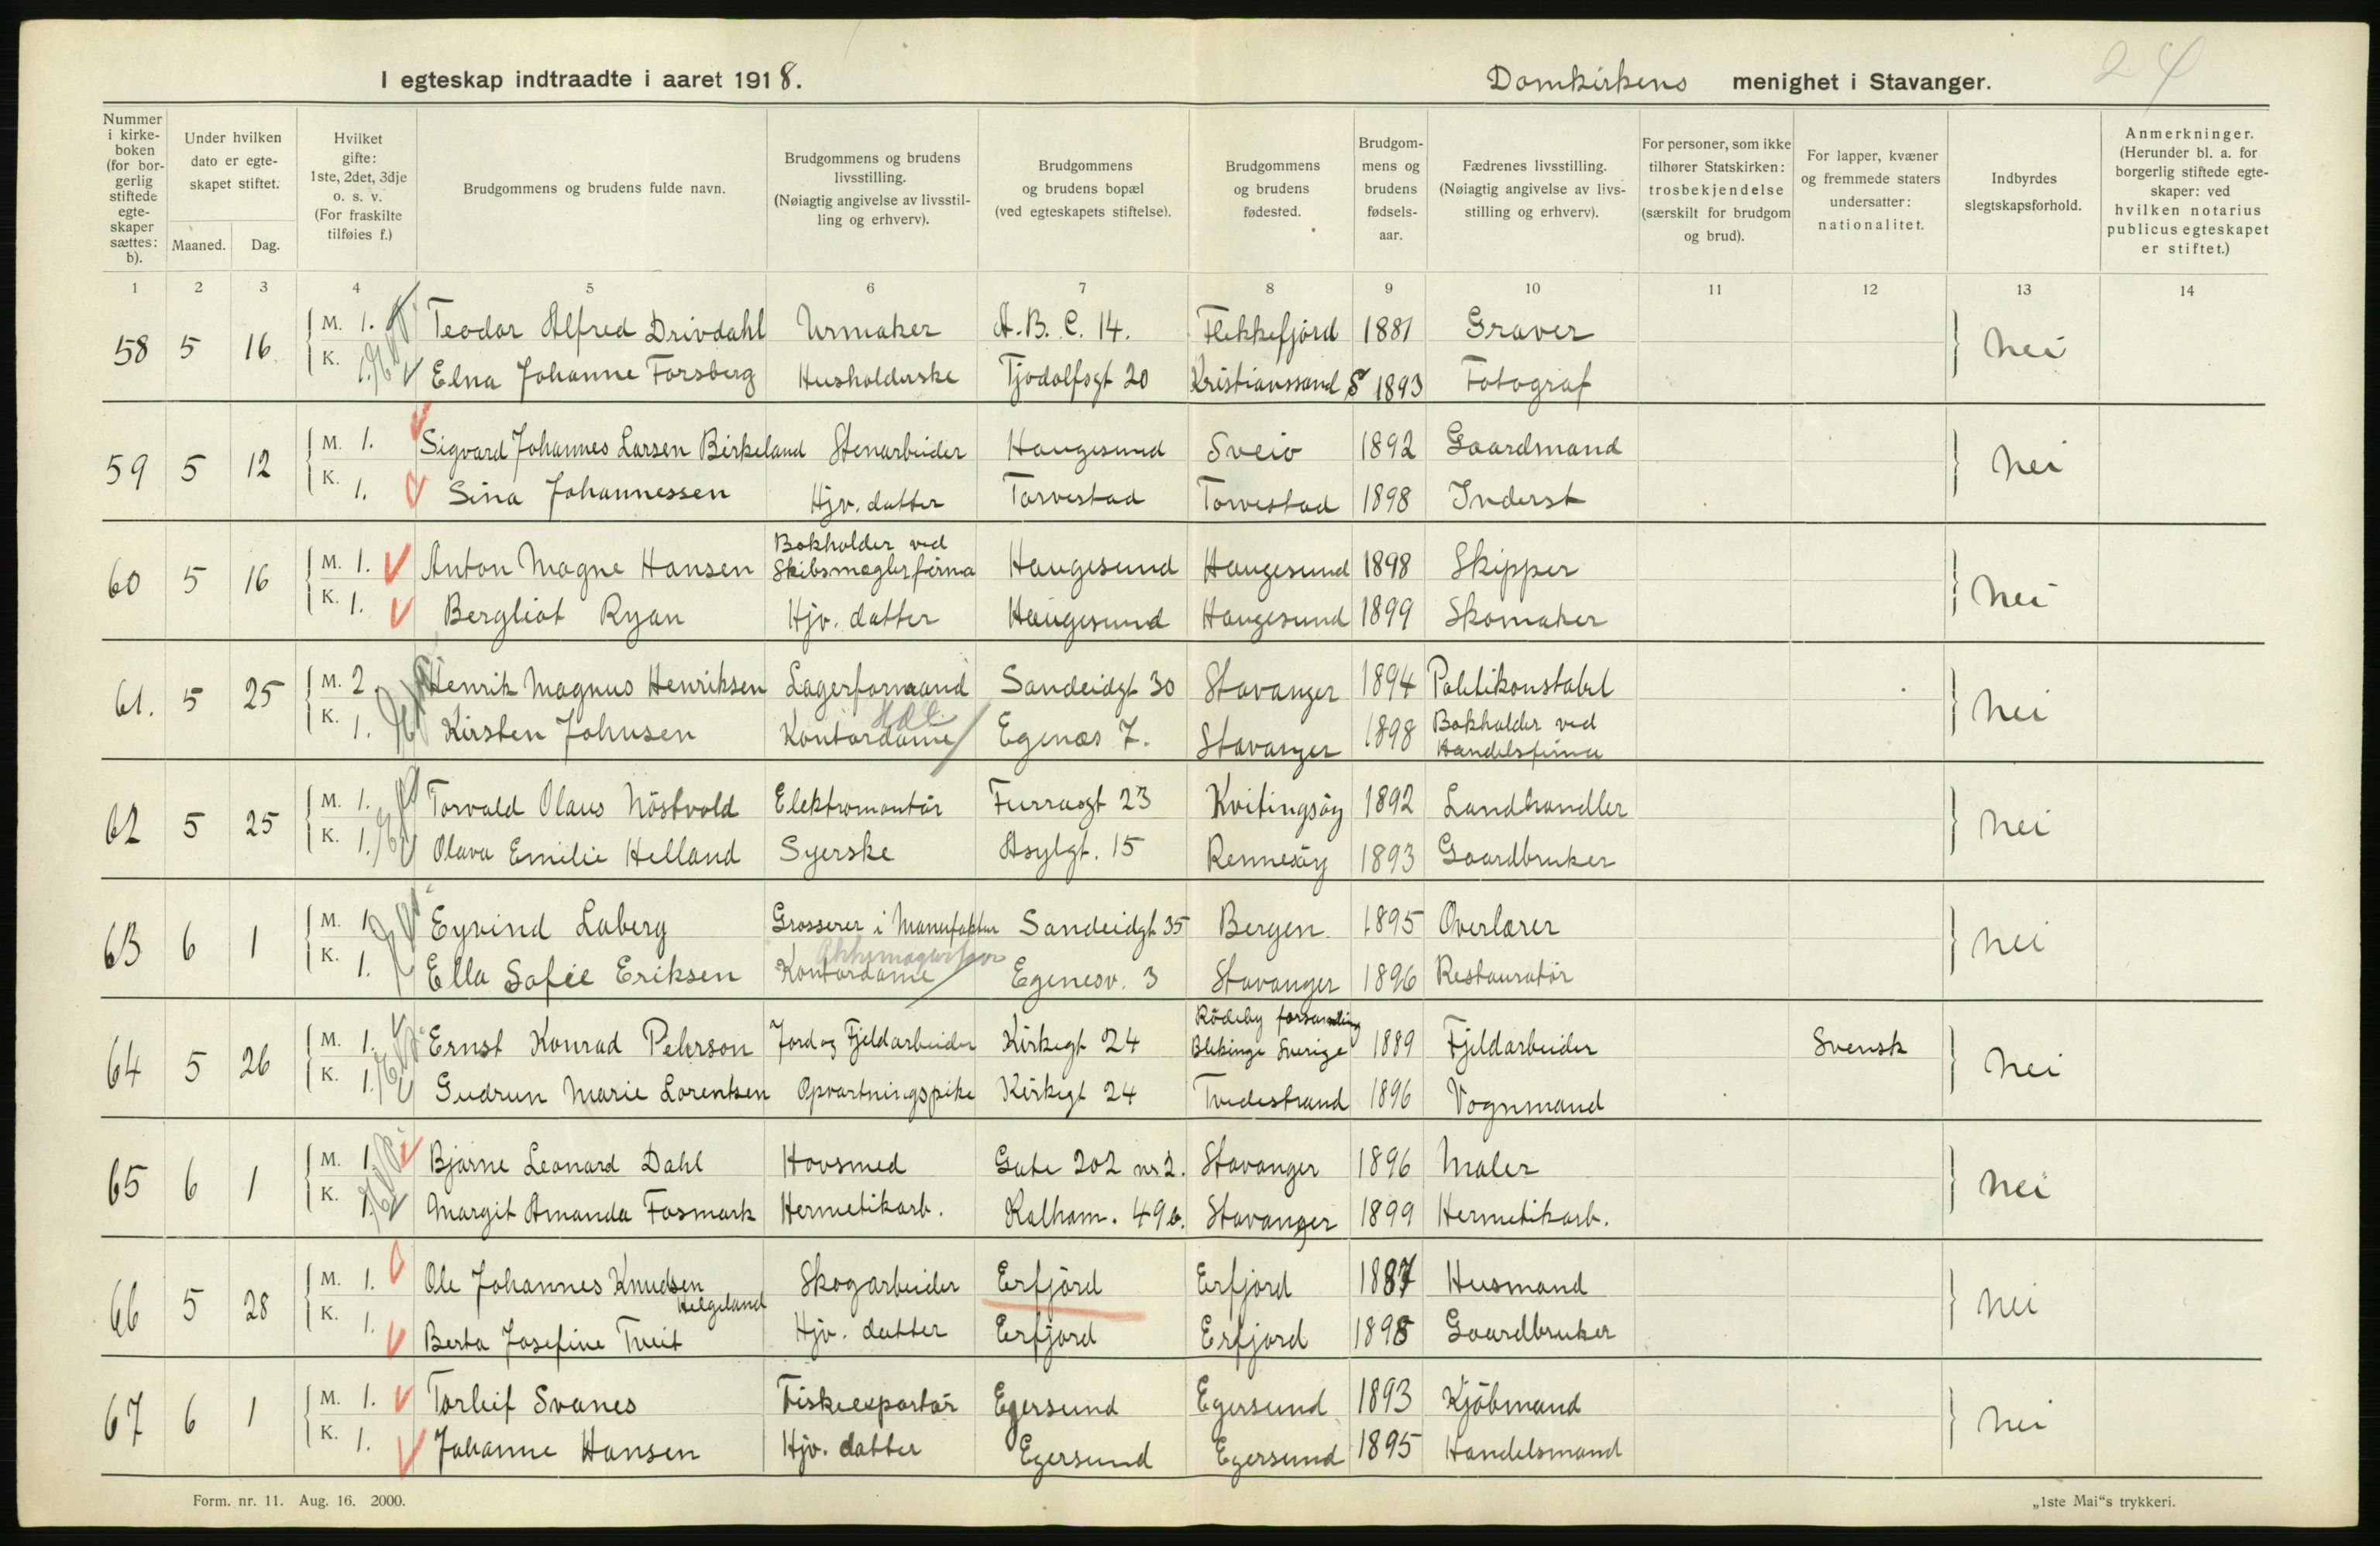 I egteskap indtraadte i aaret 1918. Domkirkens menighet i Stavanger. 24
Nummer i kirkeboken (for borgerlig stiftede egteskaper sættes: b).
Under hvilken dato er egteskapet stiftet.
Maaned. Dag.
Hvilket gifte: 1ste, 2det, 3dje o. s. v. (For fraskilte tilføies f.)
Brudgommens og brudens fulde navn.
Brudgommens og brudens livsstilling. (Nøiagtig angivelse av livsstilling og erhverv).
Brudgommens og brudens bopæl (ved egteskapets stiftelse).
Brudgommens og brudens fødested.
Brudgommens og brudens fødselsaar.
Fædrenes livsstilling. (Nøiagtig angivelse av livsstilling og erhverv).
For personer, som ikke tilhører Statskirken: trosbekjendelse (særskilt for brudgom og brud).
For lapper, kvæner og fremmede staters undersatter: nationalitet.
Indbyrdes slegtskapsforhold.
Anmerkninger. (Herunder bl. a. for borgerlig stiftede egteskaper: ved hvilken notarius publicus egteskapet er stiftet.)
1 2 3 4 5 6 7 8 9 10 11 12 13 14
58 5 16 M. 1. Teodor Alfred Drivdahl Urmaker A. B. C. 14. Flekkefjord 1881 Graver nei
K. 1. Elna Johanne Forsberg Husholderske Tjodolfsgt 20 Kristianssand S 1893 Fotograf
59 5 12 M. 1. Sigvard Johannes Larsen Birkeland Stenarbeider Haugesund Sveio 1892 Gaardmand nei
K. 1. Sina Johannessen Hjv. datter Torvestad Torvestad 1898 Inderst
60 5 16 M. 1. Anton Magne Hansen Bokholder ved Skibsmæglerfirma Haugesund Haugesund 1898 Skipper nei
K. 1. Bergliot Ryan Hjv. datter Haugesund Haugesund 1899 Skomaker
61. 5 25 M. 2 Henrik Magnus Henriksen Lagerformand Sandeidgt 30 Stavanger 1894 Politikonstabel nei
K. 1. Kirsten Johnsen Kontordame Egenæs 7. Stavanger 1898 Bokholder ved Handelsfirma
62 5 25 M. 1. Torvald Olaus Nöstvold Elektromontör Furrasgt 23 Kvitingsöy 1892 Landhandler nei
K. 1. Olava Emilie Helland Syerske Asylgt. 15 Rennesöy 1893 Gaardbruker
63 6 1 M. 1 Eyvind Laberg Grosserer i Manufaktur Sandeidgt 35 Bergen 1895 Overlærer nei
K. 1. Ella Sofie Eriksen Kontordame Egenesv. 3 Stavanger 1896 Restauratör
64 5 26 M. 1. Ernst Konrad Peterson Jord og Fjeldarbeider Kirkegt 24 Rödeby forsamling Blekinge Sverige 1889 Fjeldarbeider Svensk nei
K. 1. Gudrun Marie Lorentsen Opvartningspike Kirkegt 24 Tvedestrand 1896 Vognmand
65 6 1 M. 1 Bjarne Leonard Dahl Hovsmed Gate 202 nr 2. Stavanger 1896 Maler nei
K. 1. Margit Amanda Fosmark Hermetikarb. Kalham. 49 b. Stavanger 1899 Hermetikarb.
66 5 28 M. 1. Ole Johannes Knudsen Helgeland Skogarbeider Erfjord Erfjord 1887 Husmand nei
K. 1. Berta Josefine Tveit Hjv. datter Erfjord Erfjord 1898 Gaardbruker
67 6 1 M. 1. Torleif Svanes Fiskeexportör Egersund Egersund 1893 Kjöbmand nei
K. 1. Johanne Hansen Hjv. datter Egersund Egersund 1895 Handelsmand
Form. nr. 11. Aug. 16. 2000. „1ste Mai“s trykkeri.